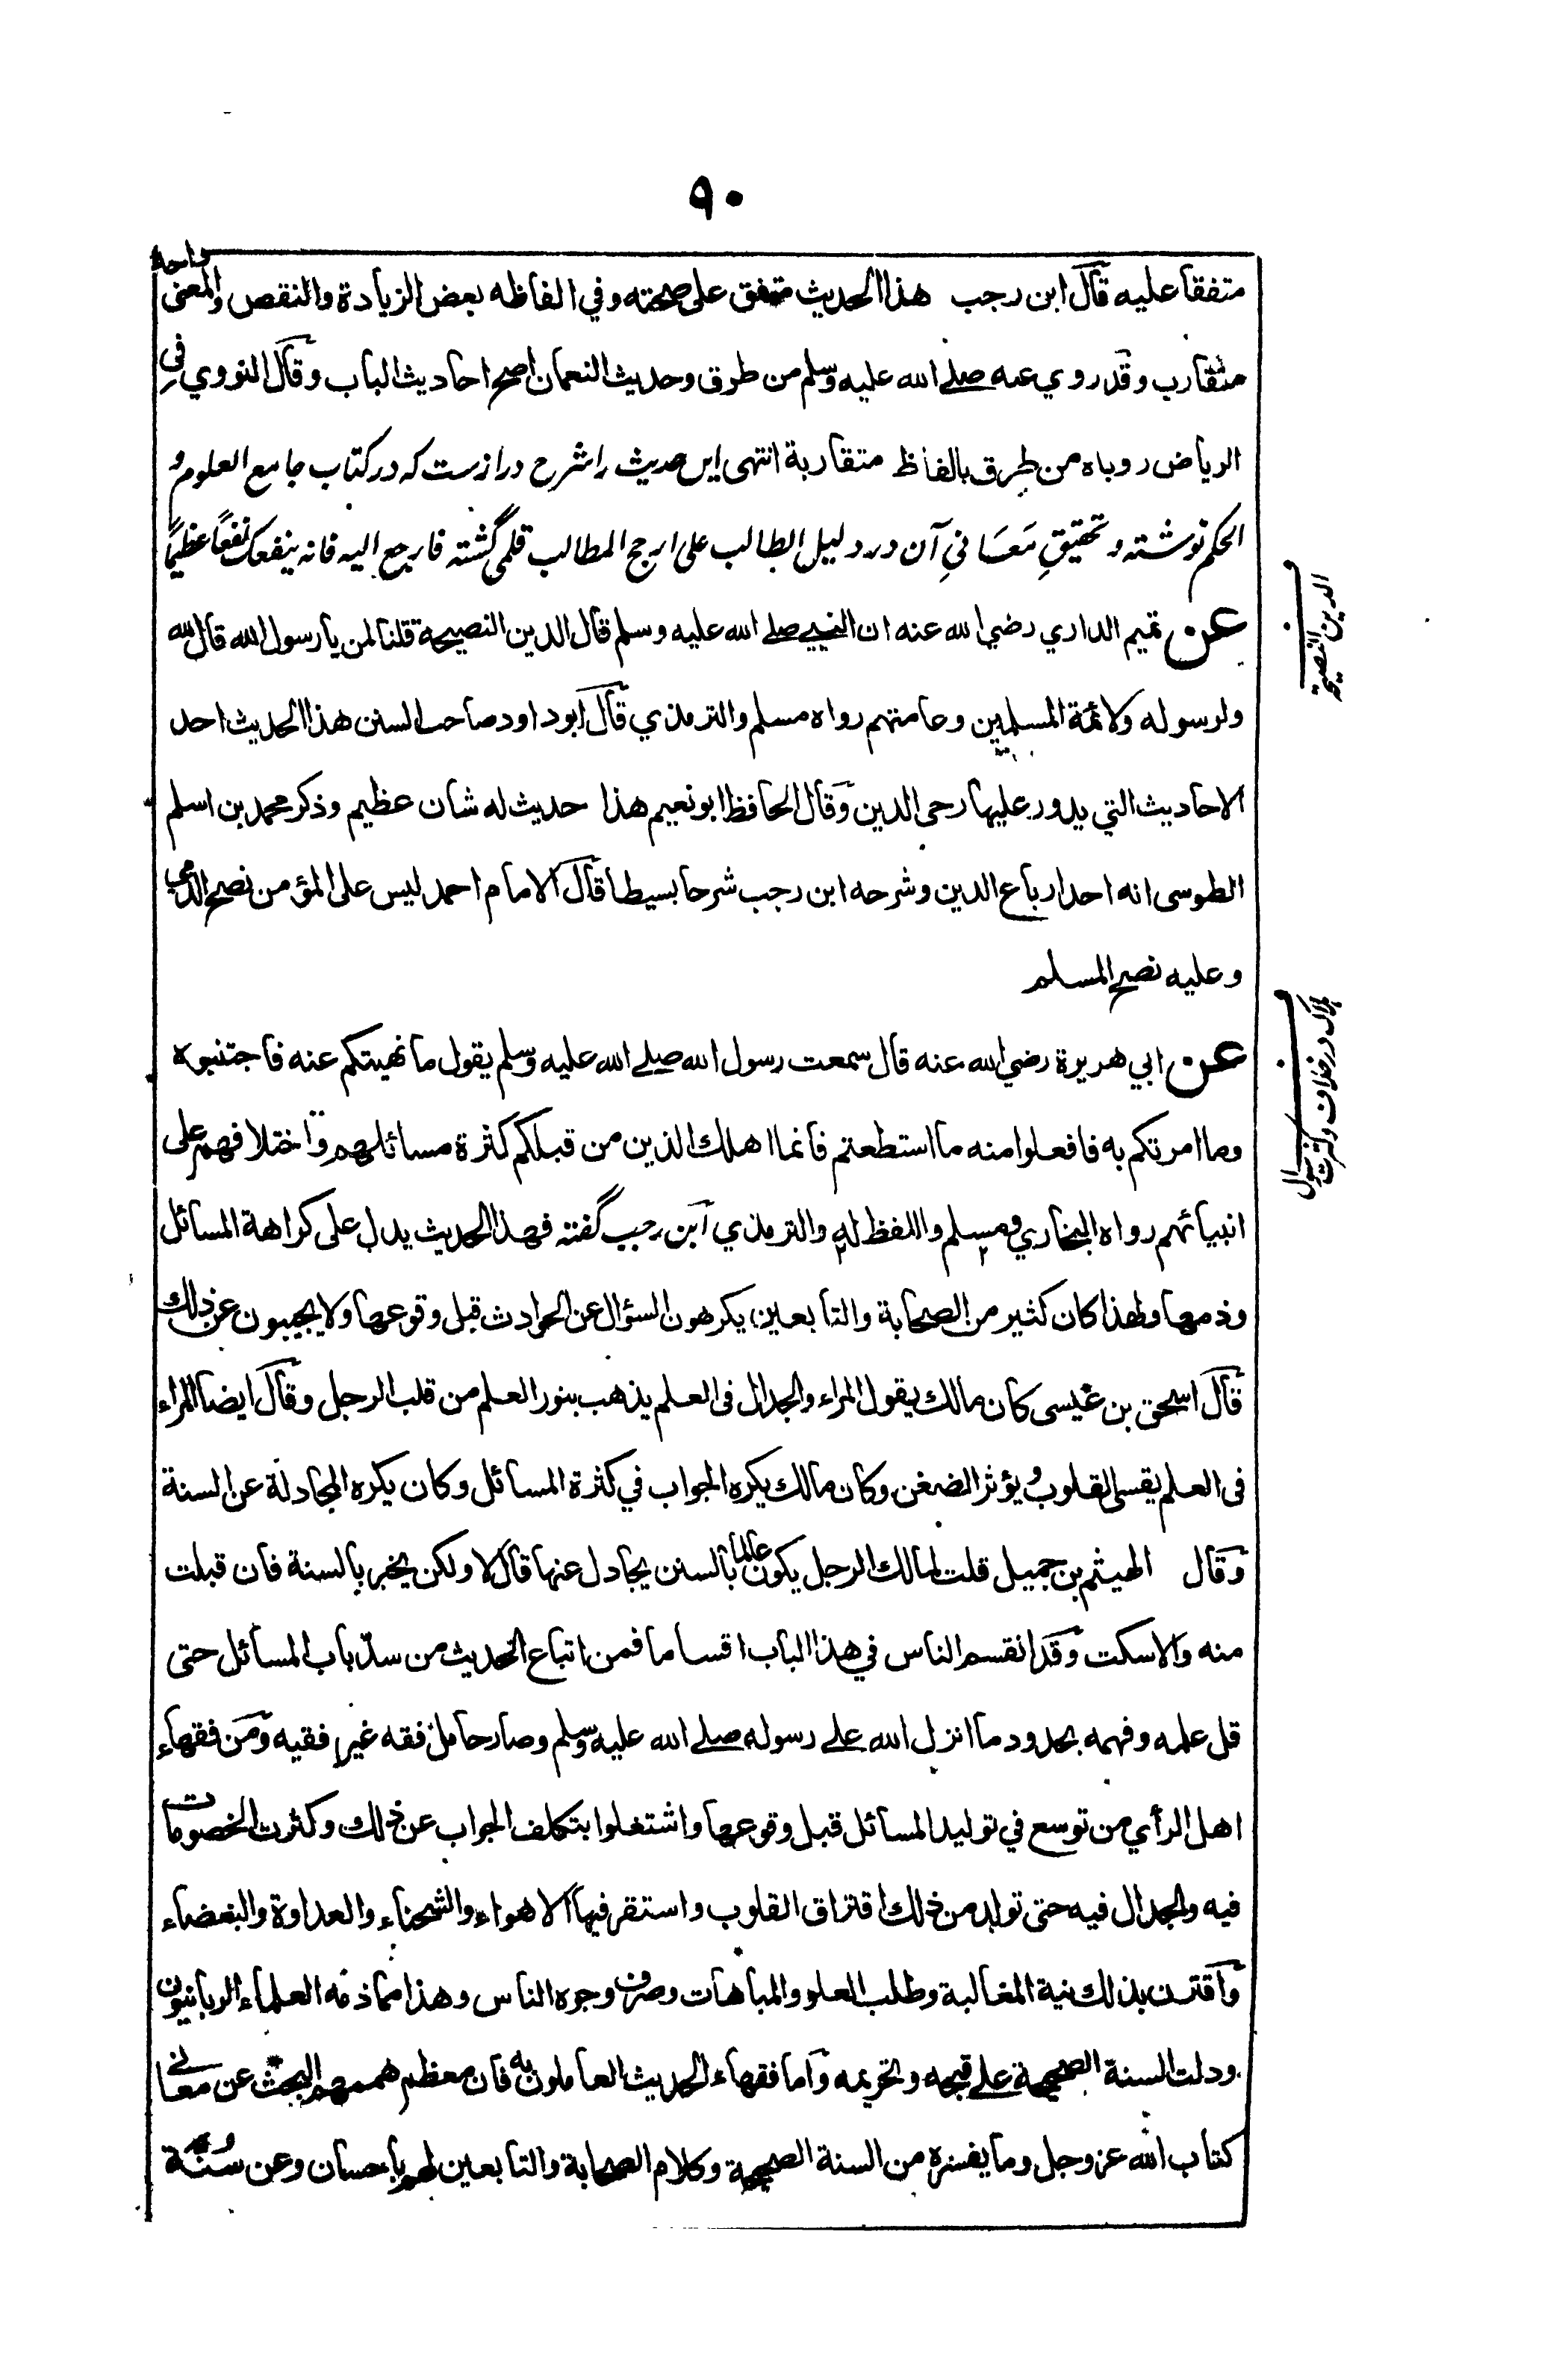 ٩٠
متفقا عليه قال ابن رجب هذا الحديث متفق على صحته وفي الفاظه بعض الزيادة والنقص والمعنى واحد
متقارب وقد روي عنه صلى الله عليه وسلم من طرق وحديث النعمان اصح احاديث الباب وقال النووي في
الرياض روياه من طرق بالفاظ متقاربة انتهى اين حديث را شرح دراز ست كه در كتاب جامع العلوم و
الحكم نوشته و تحقيقِ مَعَانيِ آن در دليل الطالب على ارجح المطالب قلمى گشته فارجع اليه فانه ينفعك نفعًا عظيمًا
عن تميم الداري رضي الله عنه ان النبي صلى الله عليه وسلم قال الدين النصيحة قلنا لمن يا رسول الله قال لله
ولرسوله ولائمة المسلمين وعامتهم رواه مسلم والترمذي قال ابو داود صاحب السنن هذا الحديث احد
الاحاديث التي يدور عليها رحى الدين وقال الحافظ ابو نعيم هذا حديث له شان عظيم وذكر محمد بن اسلم
الطوسى انه احد ارباع الدين وشرحه ابن رجب شرحا بسيطا قال الامام احمد ليس على المؤمن نصح الذمي
وعليه نصح المسلم
عن ابي هريرة رضي الله عنه قال سمعت رسول الله صلى الله عليه وسلم يقول ما نهيتكم عنه فاجتنبوه
وما امرتكم به فافعلوا منه ما استطعتم فانما اهلك الذين من قبلكم كثرة مسائلهم واختلافهم على
انبيائهم رواه البخاري ومسلم واللفظ له والترمذي ابن رجب گفته فهذا الحديث يدل على كراهة المسائل
وذمها ولهذا كان كثير من الصحابة والتابعين يكرهون السؤال عن الحوادث قبل وقوعها ولا يجيبون عن ذلك
قال اسحق بن عيسى كان مالك يقول المراء والجدال فى العلم يذهب بنور العلم من قلب الرجل وقال ايضا المراء
فى العلم يقسى القلوب ويؤثر الضغن وكان مالك يكره الجواب في كثرة المسائل وكان يكره المجادلة عن السنة
وقال الهيثم بن جميل قلت لمالك الرجل يكون عالما بالسنن يجادل عنها قال لا ولكن يخبر بالسنة فان قبلت
منه والا سكت وقد انقسم الناس في هذا الباب اقساما فمن اتباع الحديث من سدّ باب المسائل حتى
قل علمه وفهمه بحدود ما انزل الله على رسوله صلى الله عليه وسلم وصار حامل فقه غير فقيه ومن فقهاء
اهل الرأي من توسع في توليد المسائل قبل وقوعها واشتغلوا بتكلف الجواب عن ذلك وكثرت الخصومات
فيه والجدال فيه حتى تولد من ذلك افتراق القلوب واستقر فيها الاهواء والشحناء والعداوة والبغضاء
واقترن بذلك نية المغالبة وطلب العلو والمباهات وصرف وجوه الناس وهذا مما ذمه العلماء الربانيون
ودلت السنة الصحيحة على قبحه وتحريمه واما فقهاء الحديث العاملون به فان معظم هممهم البحث عن معاني
كتاب الله عز وجل وما يفسره من السنة الصحيحة وكلام الصحابة والتابعين لهم باحسان وعن سُنّة
الدين النصيحة
هلاك در خلاف و كثرت سوال